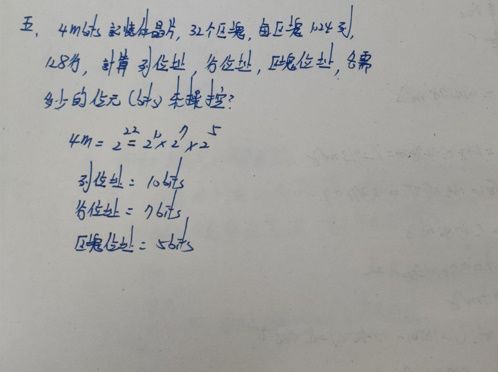 五、4mbits 記憶体晶片，32个区塊，由区塊 1024列，
128行，計算 列位址，行位址，区塊位址，各需
多少的位元(bits)来操控?
4m = 2²² = 2¹⁰ × 2⁷ × 2⁵
列位址 = 10bits
行位址 = 7bits
区塊位址 = 5bits